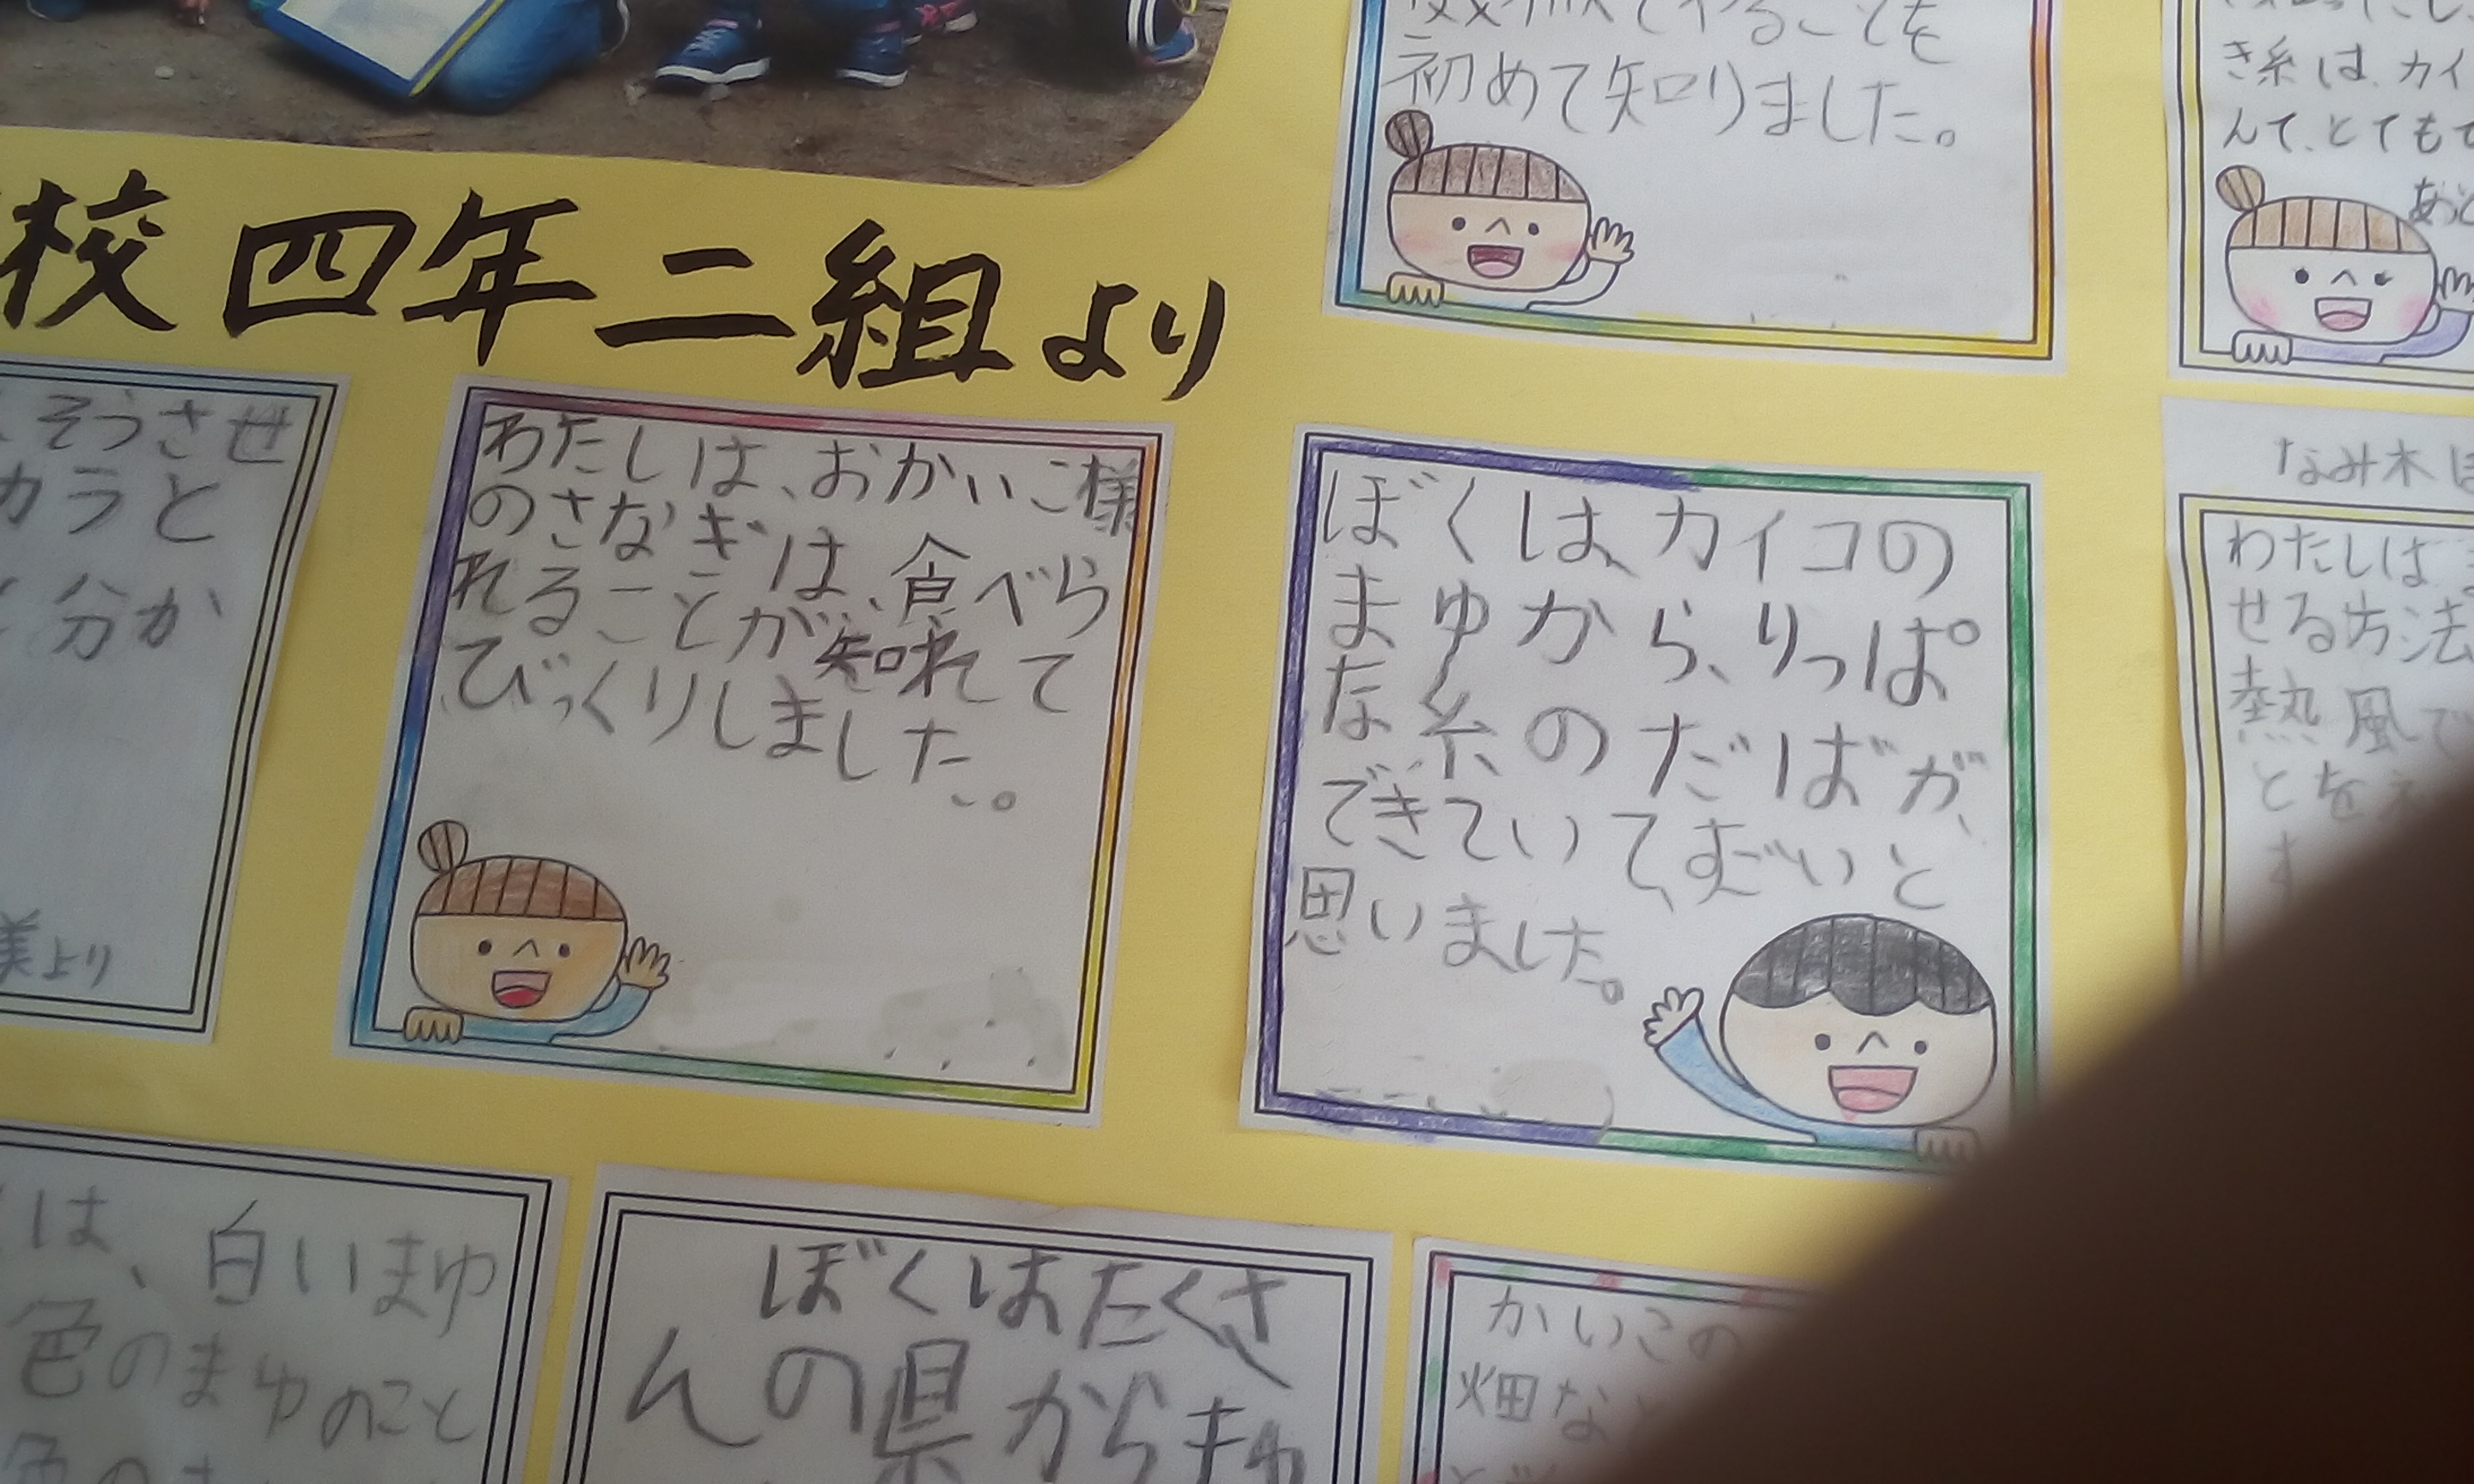 てくることを
初めて知りました。
き糸は、カイ
んて、とてもて
校四年二組より
そうさせ
カラと
分か
美より
わたしは、おかいこ様
のさなぎは、食べら
れることが知れて
びっくりしました。
ぼくは、カイコの
まゆから、りっぱ
な糸のだばが、
できていて、すごいと
思いました。
なみ木
わたしは
せる方法
熱風で
とを
は、白いまゆ
色のまゆのこと
ぼくはたくさ
んの県からまゆ
かいこの
畑な